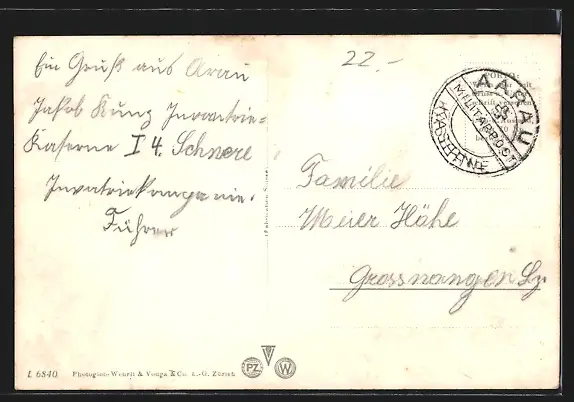 Ein Gruß aus Arau
Jakob Kunz Invantrie=
Kaserne I 4. Schwere
Invatriekompanie.
Führer
22.-
AARAU
MILITÄRPOST
KASERNE
Familie
Meier Höhe
Grosswangen Lz.
L 6840 Photoglob-Wehrli & Vouga & Co. A.-G. Zürich
PZ W